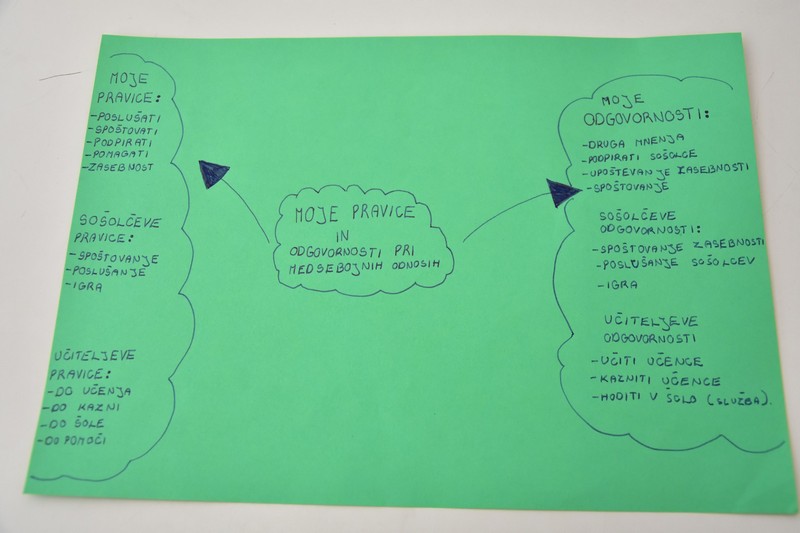 MOJE
PRAVICE:
-POSLUŠATI
-SPOŠTOVATI
-PODPIRATI
-POMAGATI
-ZASEBNOST
SOŠOLČEVE
PRAVICE:
-SPOŠTOVANJE
-POSLUŠANJE
-IGRA
UČITELJEVE
PRAVICE:
-DO UČENJA
-DO KAZNI
-DO ŠOLE
-DO POMOČI
MOJE PRAVICE
IN
ODGOVORNOSTI PRI
MEDSEBOJNIH ODNOSIH
MOJE
ODGOVORNOSTI:
-DRUGA MNENJA
-PODPIRATI SOŠOLCE
-UPOŠTEVANJE ZASEBNOSTI
-SPOŠTOVANJE
SOŠOLČEVE
ODGOVORNOSTI:
-SPOŠTOVANJE ZASEBNOSTI
-POSLUŠANJE SOŠOLCEV
-IGRA
UČITELJEVE
ODGOVORNOSTI
-UČITI UČENCE
-KAZNITI UČENCE
-HODITI V ŠOLO (SLUŽBA).